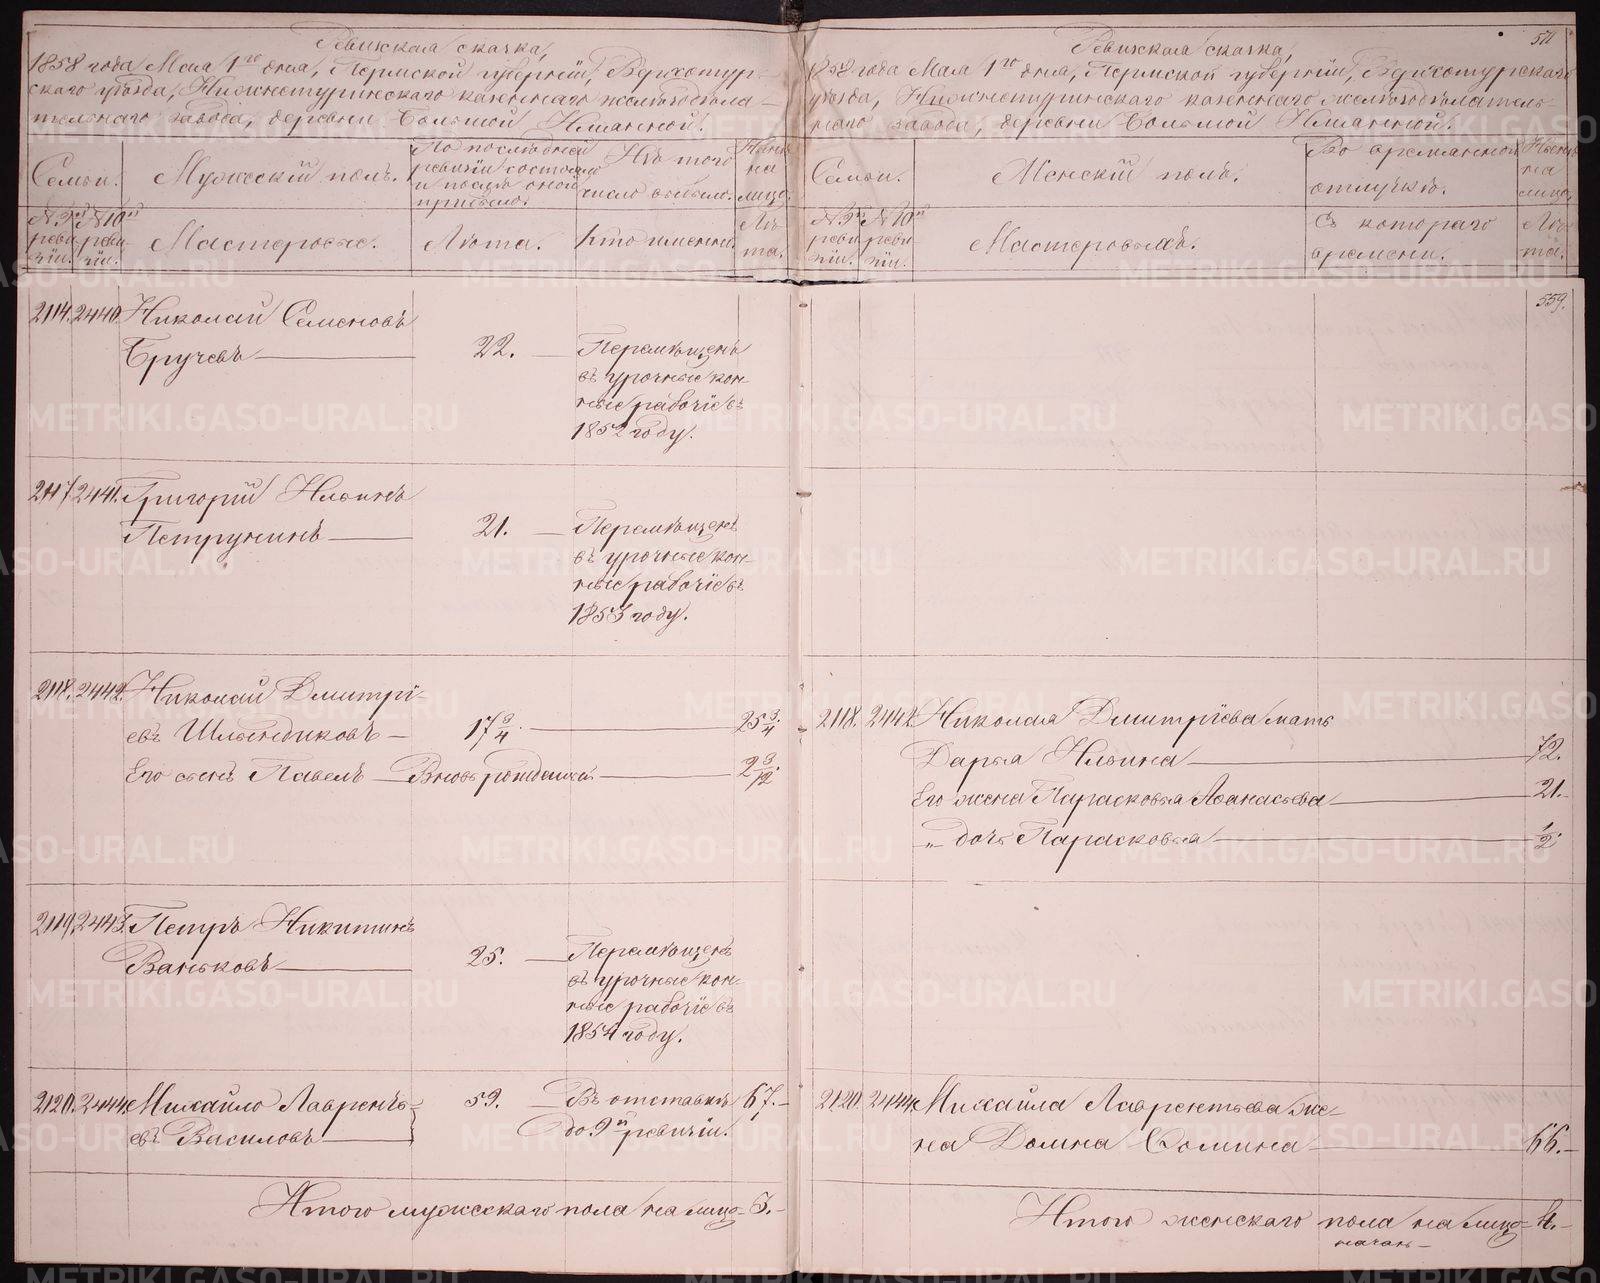 Ревизская сказка,
1858 года Мая 1го дня, Пермской губернiи, Верхотур-
скаго уѣзда, Нижнетуринскаго казеннаго желѣзодѣла-
тельнаго завода, деревни Большой Именной.
Семьи.
Мужескiй полъ.
По послѣдней
ревизiи состояло
и послѣ оной
прибыло.
Изъ того
число выбыло.
Нынѣ
на
лицо.
№ 9й
реви-
зiи.
№ 10й
реви-
зiи.
Мастеровые.
Лѣта.
Кто именно.
Лѣ-
та.
2114. 2440. Николай Семеновъ
Бручевъ 22. Перемѣщенъ
въ урочные кон-
ные рабочiе въ
1852 году.
2117. 2441. Григорiй Ильинъ
Петрунинъ 21. Перемѣщенъ
въ урочные кон-
ные рабочiе въ
1853 году.
2118. 2442. Николай Дмитрi-
евъ 17 3/4. 25 3/4.
Его сынъ Павелъ Вновь рожденный 2 3/12
2119. 2443. Петръ Никитинъ
Ваньковъ 25. Перемѣщенъ
въ урочные кон-
ные рабочiе въ
1854 году.
2120. 2444. Михайло Лаврентъ-
евъ Василовъ 59. Въ отставкѣ 67.
до 9й ревизiи.
Итого мужескаго пола на лицо 3.
511
Ревизская сказка,
1858 года Мая 1го дня, Пермской губернiи, Верхотурскаго
уѣзда, Нижнетуринскаго казеннаго желѣзодѣлатель-
наго завода, деревни Большой Именной.
Семьи.
Женскiй полъ.
Во временной
отлучкѣ.
Нынѣ
на
лицо.
№ 9й
реви-
зiи.
№ 10й
реви-
зiи.
Мастеровыхъ.
Съ котораго
времени.
Лѣ-
та.
559.
2118. 2442. Николая Дмитрiева мать
Дарья Ильина 72.
Его жена Парасковья Афанасьева 21.
„ дочь Парасковья 1/2.
2120. 2444. Михайла Лаврентьева же-
на Домна Фомина 66.
Итого женскаго пола на лицо 4.
METRIKI.GASO-URAL.RU